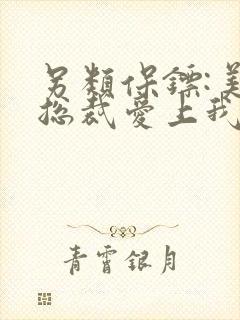 另類保鏢:美
総裁愛上我
青霄銀月